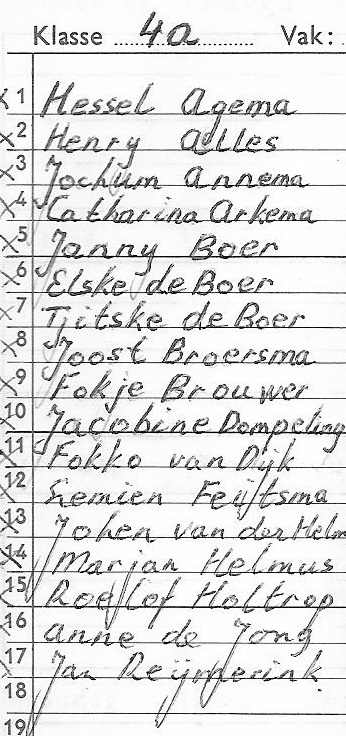 Klasse 4a Vak:
x 1 Hessel Agema
x 2 Henry Aelles
x 3 Jochum Annema
x 4 Catharina Arkema
x 5 Janny Boer
x 6 Elske de Boer
x 7 Tjitske de Boer
x 8 Joost Broersma
x 9 Fokje Brouwer
x 10 Jacobine Dompeling
x 11 Fokko van Dijk
x 12 Feijtsma
x 13 Johen van der Helm
x 14 Marjan Helmus
x 15 Roelof Holtrop
x 16 Anne de Jong
x 17 Jan Reijmerink
18
19